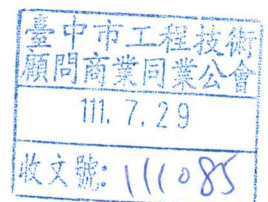 臺中市工程技術
顧問商業同業公會
111. 7. 29
收文號: 111085